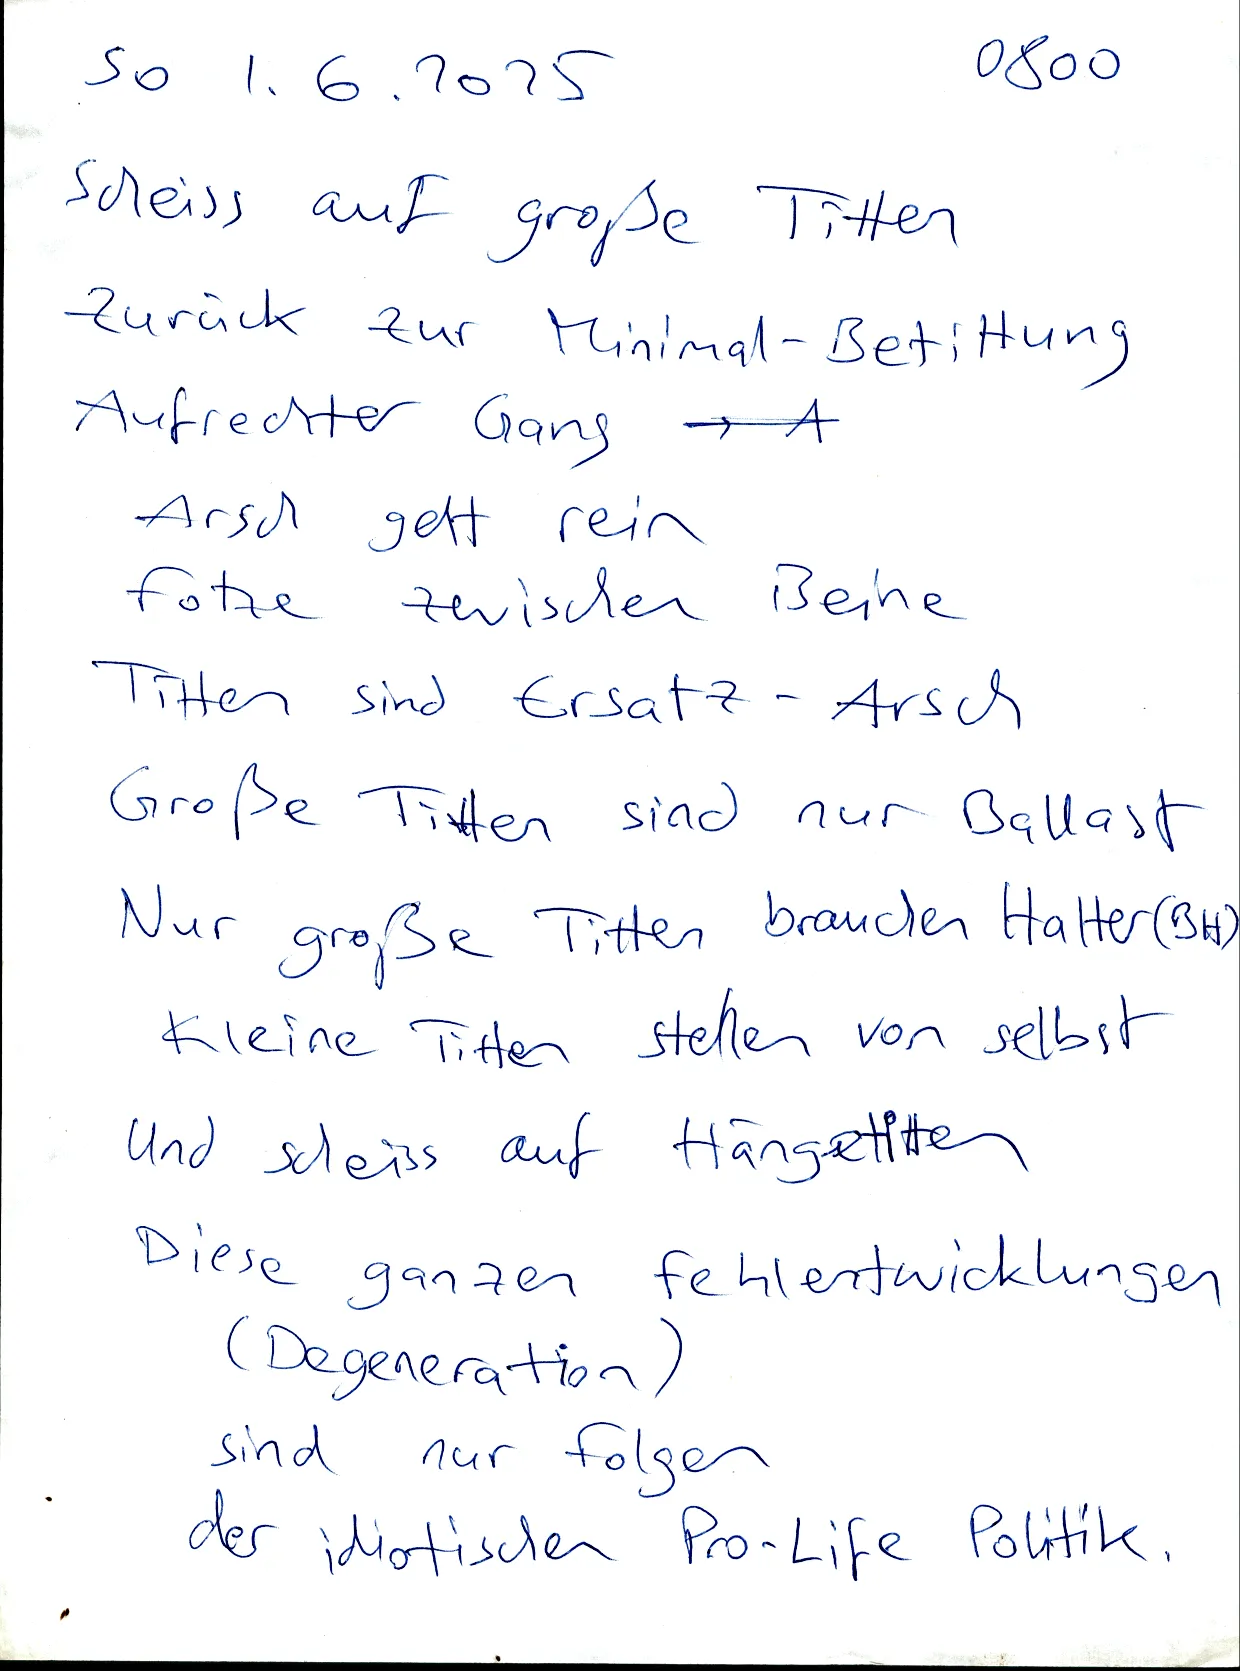 So 1.6.2025 0800
Scheiss auf große Titten
Zurück zur Minimal-Betittung
Aufrechter Gang → A
Arsch geht rein
Fotze zwischen Beine
Titten sind Ersatz-Arsch
Große Titten sind nur Ballast
Nur große Titten brauchen Halter (BH)
Kleine Titten stehen von selbst
Und scheiss auf Hängetitten
Diese ganzen Fehlentwicklungen
(Degeneration)
sind nur Folgen
der idiotischen Pro-Life Politik.